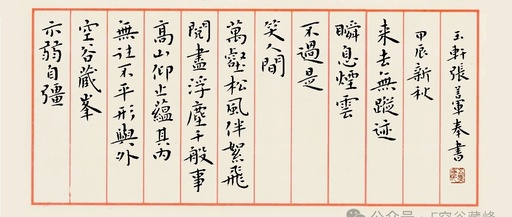 示弱自彊
空谷藏峯
無往不平形與外
高山仰止蘊其内
閱盡浮塵千般事
萬壑松風伴絮飛
笑人間
不過是
瞬息煙雲
来去無蹤迹
甲辰新秋
玉軒張善軍奉書
公众号 · 「空谷藏峰